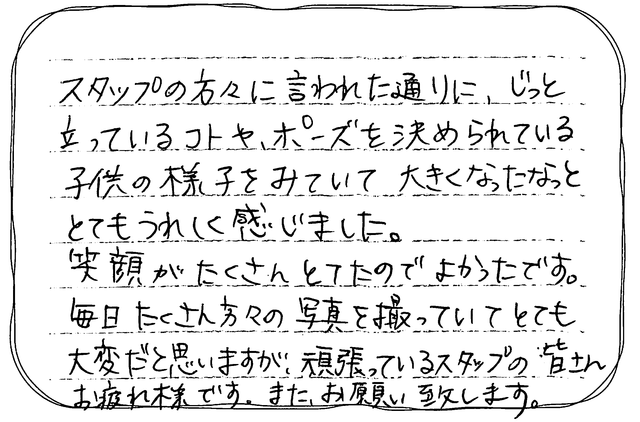 スタッフの方々に言われた通りに、じっと
立っているコトや、ポーズを決められている
子供の様子をみていて 大きくなったなっと
とてもうれしく感じました。
笑顔がたくさんとてたのでよかったです。
毎日たくさん方々の写真を撮っていてとても
大変だと思いますが、頑張っているスタッフの皆さん
お疲れ様です。また、お願い致します。